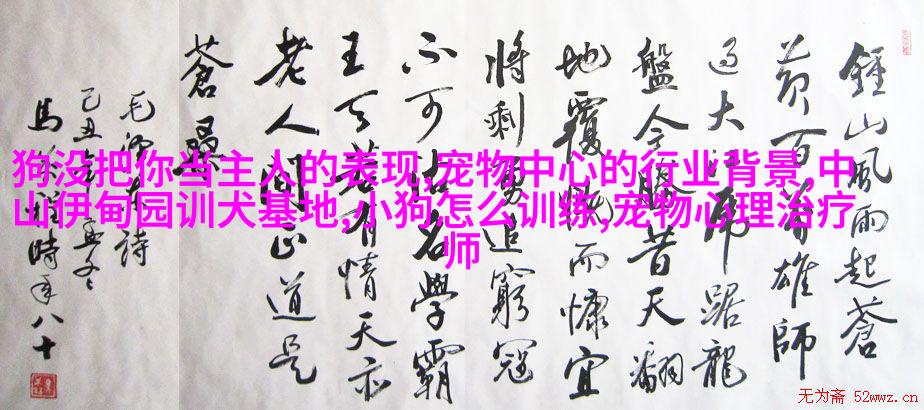 鍾山風雨起蒼
黄百萬雄師
過大江虎踞龍
盤今勝昔天翻
地覆慨而慷宜
將剩勇追窮寇
不可沽名學霸
王天若有情天亦
老人間正道是
蒼桑
毛澤東詩
己丑年孟冬
馬時年八十
狗没把你当主人的表现,宠物中心的行业背景,中
山伊甸园训犬基地,小狗怎么训练,宠物心理治疗
师
无为斋 52wwz.cn